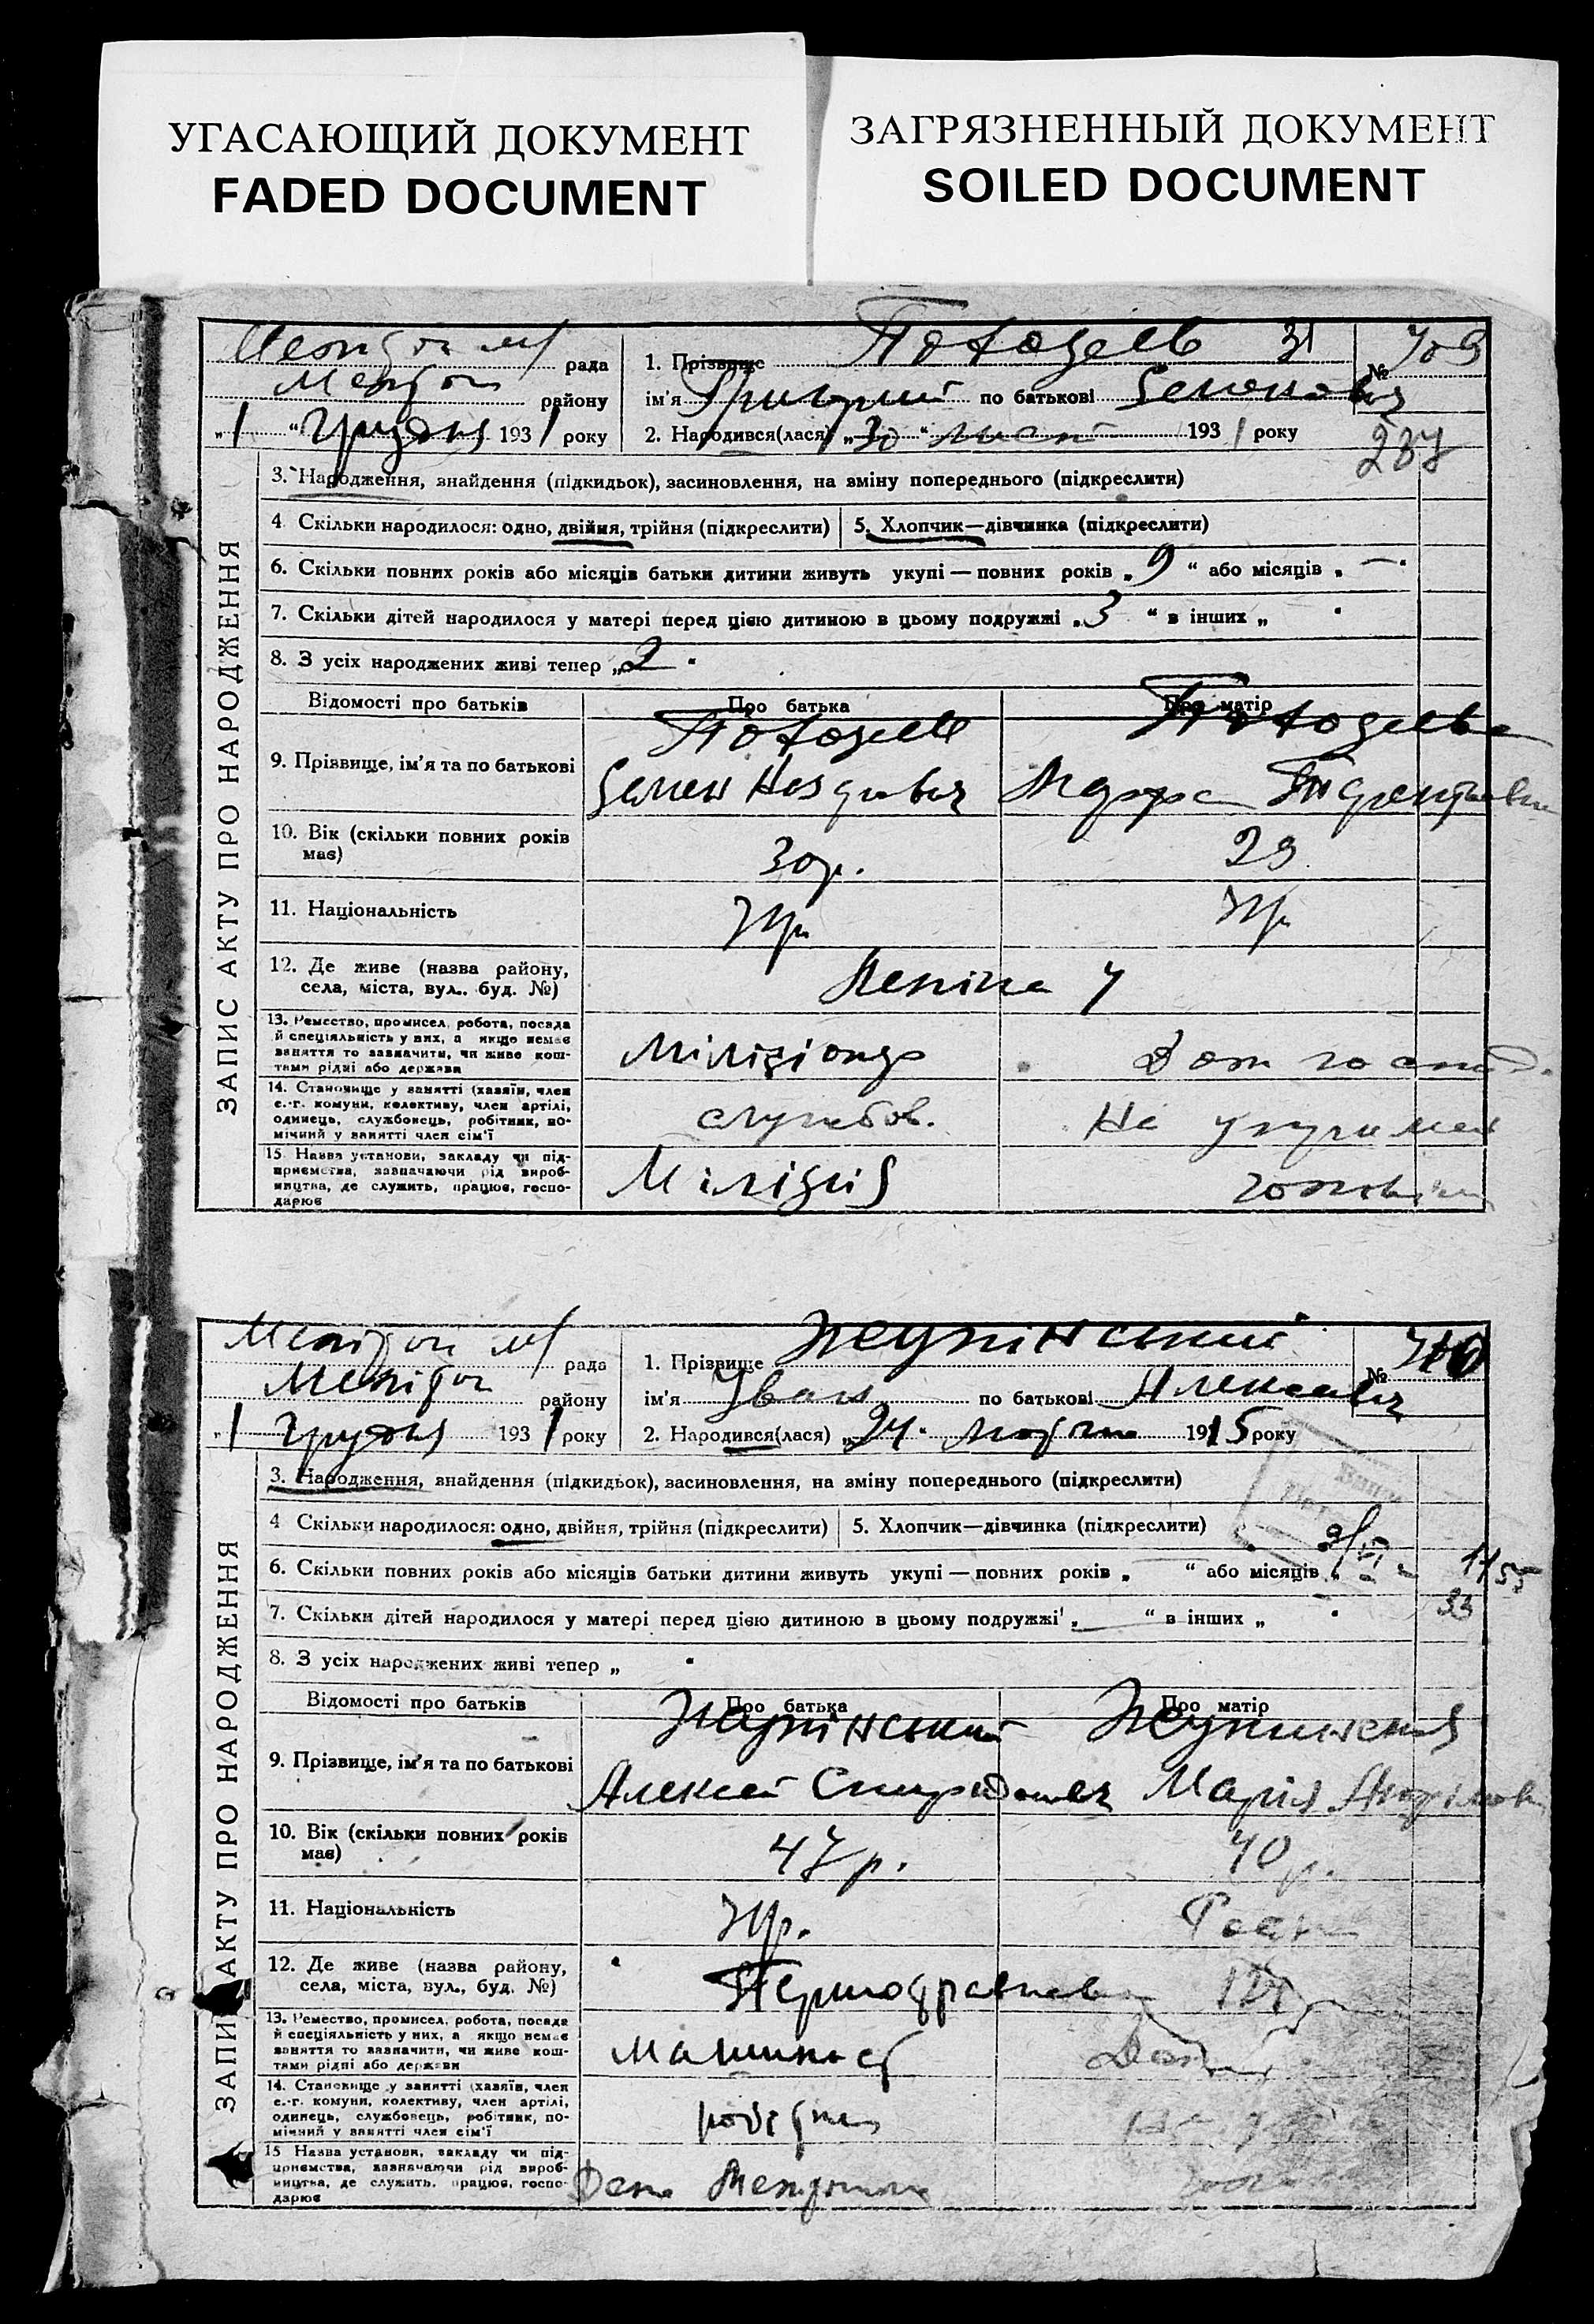 УГАСАЮЩИЙ ДОКУМЕНТ
FADED DOCUMENT
ЗАГРЯЗНЕННЫЙ ДОКУМЕНТ
SOILED DOCUMENT
ЗАПИС АКТУ ПРО НАРОДЖЕННЯ
рада
району
„1“ Грудня 1931 року
1. Прізвище
№ 709
ім'я Григорий по батькові Семенович
2. Народився(лася) „30“ лист 1931 року
237
3. Народження, знайдення (підкидьок), засиновлення, на зміну попереднього (підкреслити)
4 Скільки народилося: одно, двійня, трійня (підкреслити)
5. Хлопчик—дівчинка (підкреслити)
6. Скільки повних років або місяців батьки дитини живуть укупі — повних років „9“ або місяців „—.
7. Скільки дітей народилося у матері перед цією дитиною в цьому подружжі „3“ в інших „
8. З усіх народжених живі тепер „2.
Відомості про батьків
Про батька
Про матір
9. Прізвище, ім'я та по батькові
Семен
10. Вік (скільки повних років має)
30р.
29
11. Національність
Укр
Укр
12. Де живе (назва району, села, міста, вул., буд. №)
Леніна
13. Ремество, промисел, робота, посада й спеціяльність у них, а якщо немає заняття то зазначити, чи живе коштами рідні або держава
Міліціонер
Дом господ.
14. Становище у занятті (хазяїн, член с.-г. комуни, колективу, член артілі, одинець, службовець, робітник, помічний у занятті член сім'ї
службов.
На утриман
15 Назва установи, закладу чи підприємства, зазначаючи рід виробництва, де служить, працює, господарює
Міліція
чоловіка
ЗАПИС АКТУ ПРО НАРОДЖЕННЯ
рада
району
„1 Грудня 1931 року
1. Прізвище
№ 710
ім'я Иван по батькові Алексеевич
2. Народився(лася) „24“ 1915 року
3. Народження, знайдення (підкидьок), засиновлення, на зміну попереднього (підкреслити)
4 Скільки народилося: одно, двійня, трійня (підкреслити)
5. Хлопчик—дівчинка (підкреслити)
6. Скільки повних років або місяців батьки дитини живуть укупі — повних років „ “ або місяців „
7. Скільки дітей народилося у матері перед цією дитиною в цьому подружжі „ “ в інших „
33
8. З усіх народжених живі тепер „
Відомості про батьків
Про батька
Про матір
9. Прізвище, ім'я та по батькові
Алексей Спиридонович
Марія
10. Вік (скільки повних років має)
47р.
40 р.
11. Національність
Укр.
12. Де живе (назва району, села, міста, вул., буд. №)
13. Ремество, промисел, робота, посада й спеціяльність у них, а якщо немає заняття то зазначити, чи живе коштами рідні або держави
Машиніст
14. Становище у занятті (хазяїн, член с.-г. комуни, колективу, член артілі, одинець, службовець, робітник, помічний у занятті член сім'ї
робітник
15 Назва установи, закладу чи підприємства, зазначаючи рід виробництва, де служить, працює, господарює
Депо